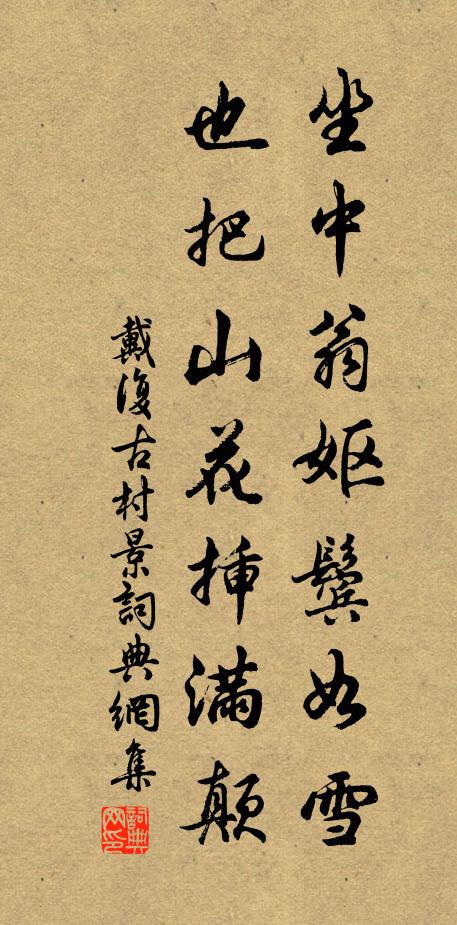 坐中翁妪鬓如雪
也把山花插满颠
戴復古村景詞典網集
詞典網印